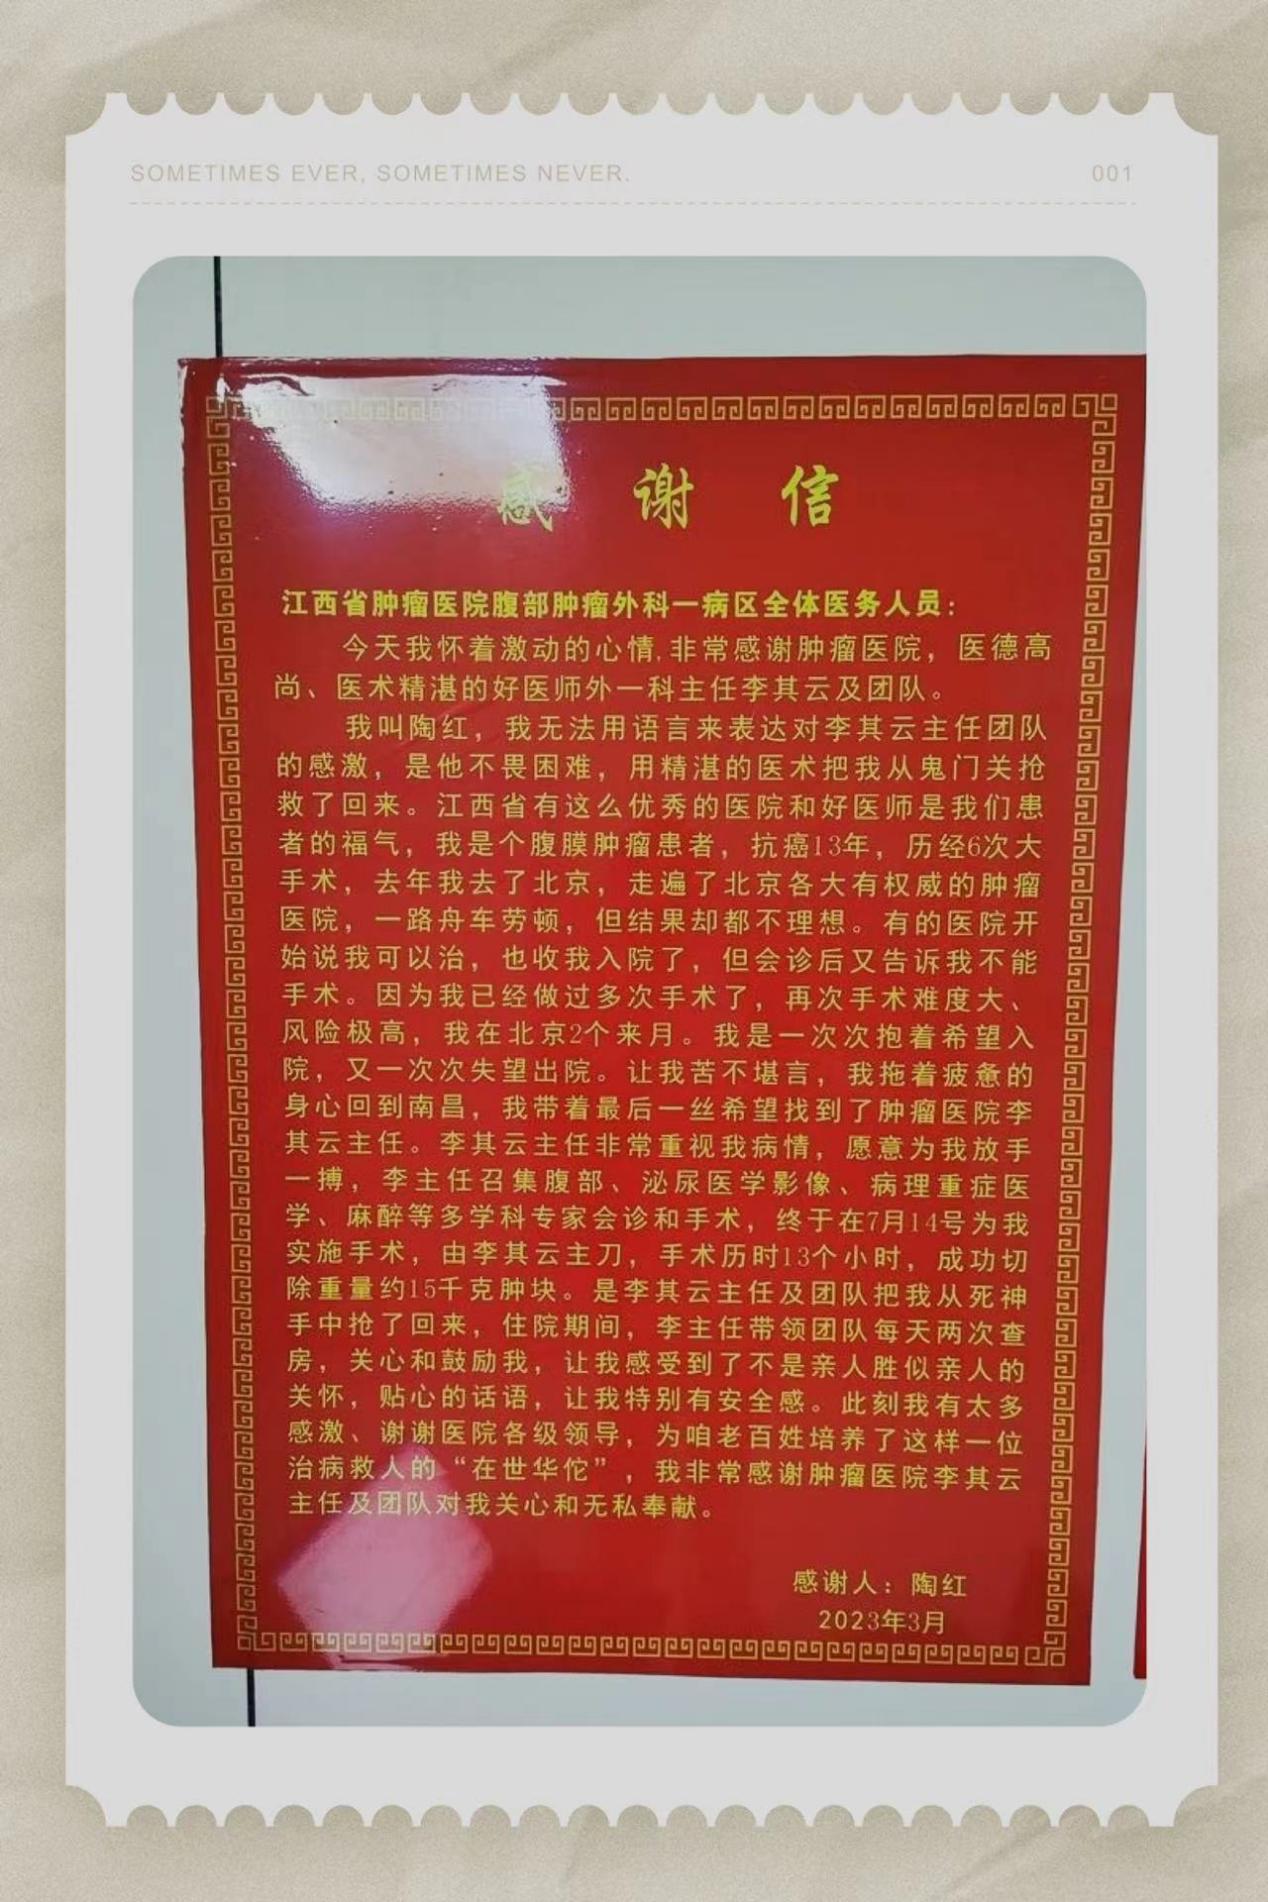 SOMETIMES EVER, SOMETIMES NEVER.
001
感谢信
江西省肿瘤医院腹部肿瘤外科一病区全体医务人员：
今天我怀着激动的心情,非常感谢肿瘤医院，医德高
尚、医术精湛的好医师外一科主任李其云及团队。
我叫陶红，我无法用语言来表达对李其云主任团队
的感激，是他不畏困难，用精湛的医术把我从鬼门关抢
救了回来。江西省有这么优秀的医院和好医师是我们患
者的福气，我是个腹膜肿瘤患者，抗癌13年，历经6次大
手术，去年我去了北京，走遍了北京各大有权威的肿瘤
医院，一路舟车劳顿，但结果却都不理想。有的医院开
始说我可以治，也收我入院了，但会诊后又告诉我不能
手术。因为我已经做过多次手术了，再次手术难度大、
风险极高，我在北京2个来月。我是一次次抱着希望入
院，又一次次失望出院。让我苦不堪言，我拖着疲惫的
身心回到南昌，我带着最后一丝希望找到了肿瘤医院李
其云主任。李其云主任非常重视我病情，愿意为我放手
一搏，李主任召集腹部、泌尿医学影像、病理重症医
学、麻醉等多学科专家会诊和手术，终于在7月14号为我
实施手术，由李其云主刀，手术历时13个小时，成功切
除重量约15千克肿块。是李其云主任及团队把我从死神
手中抢了回来，住院期间，李主任带领团队每天两次查
房，关心和鼓励我，让我感受到了不是亲人胜似亲人的
关怀，贴心的话语，让我特别有安全感。此刻我有太多
感激、谢谢医院各级领导，为咱老百姓培养了这样一位
治病救人的“在世华佗”，我非常感谢肿瘤医院李其云
主任及团队对我关心和无私奉献。
感谢人：陶红
2023年3月